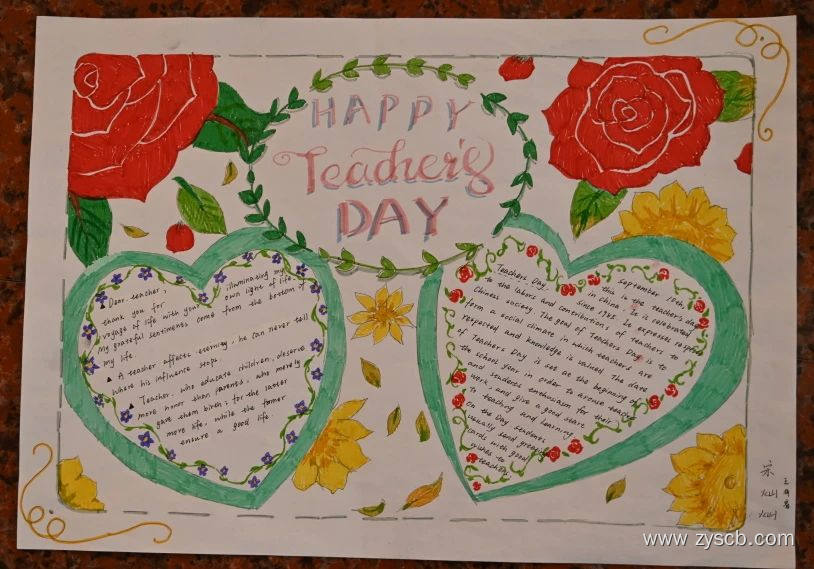 HAPPY
Teacher's
DAY
▲ Dear, teacher,
thank you for illuminating my
voyage of life with your own light of life.
My grateful sentiments come from the bottom of
my life.
▲ A teacher affects eternity, he can never tell
where his influence stops.
▲ Teacher, who educate children, deserve
more honor than parents, who merely
gave them birth; for the latter
more life, while the former
ensure a good life.
Teachers Day, September 10th,
this is the teacher's day
in China. It is celebrated
since 1985. It expresses respect
to the labors and contributions of teachers to
Chinese society. The goal of Teachers Day is to
form a social climate in which teachers are
respected and knowledge is valued. The date
of Teachers Day is set at the beginning of
the school year in order to arouse teachers
and students enthusiasm for their
work, and give a good start
to teaching and learning
on the Day students
usually send greeting
cards with good
wishes to
teachers.
www.zyscb.com